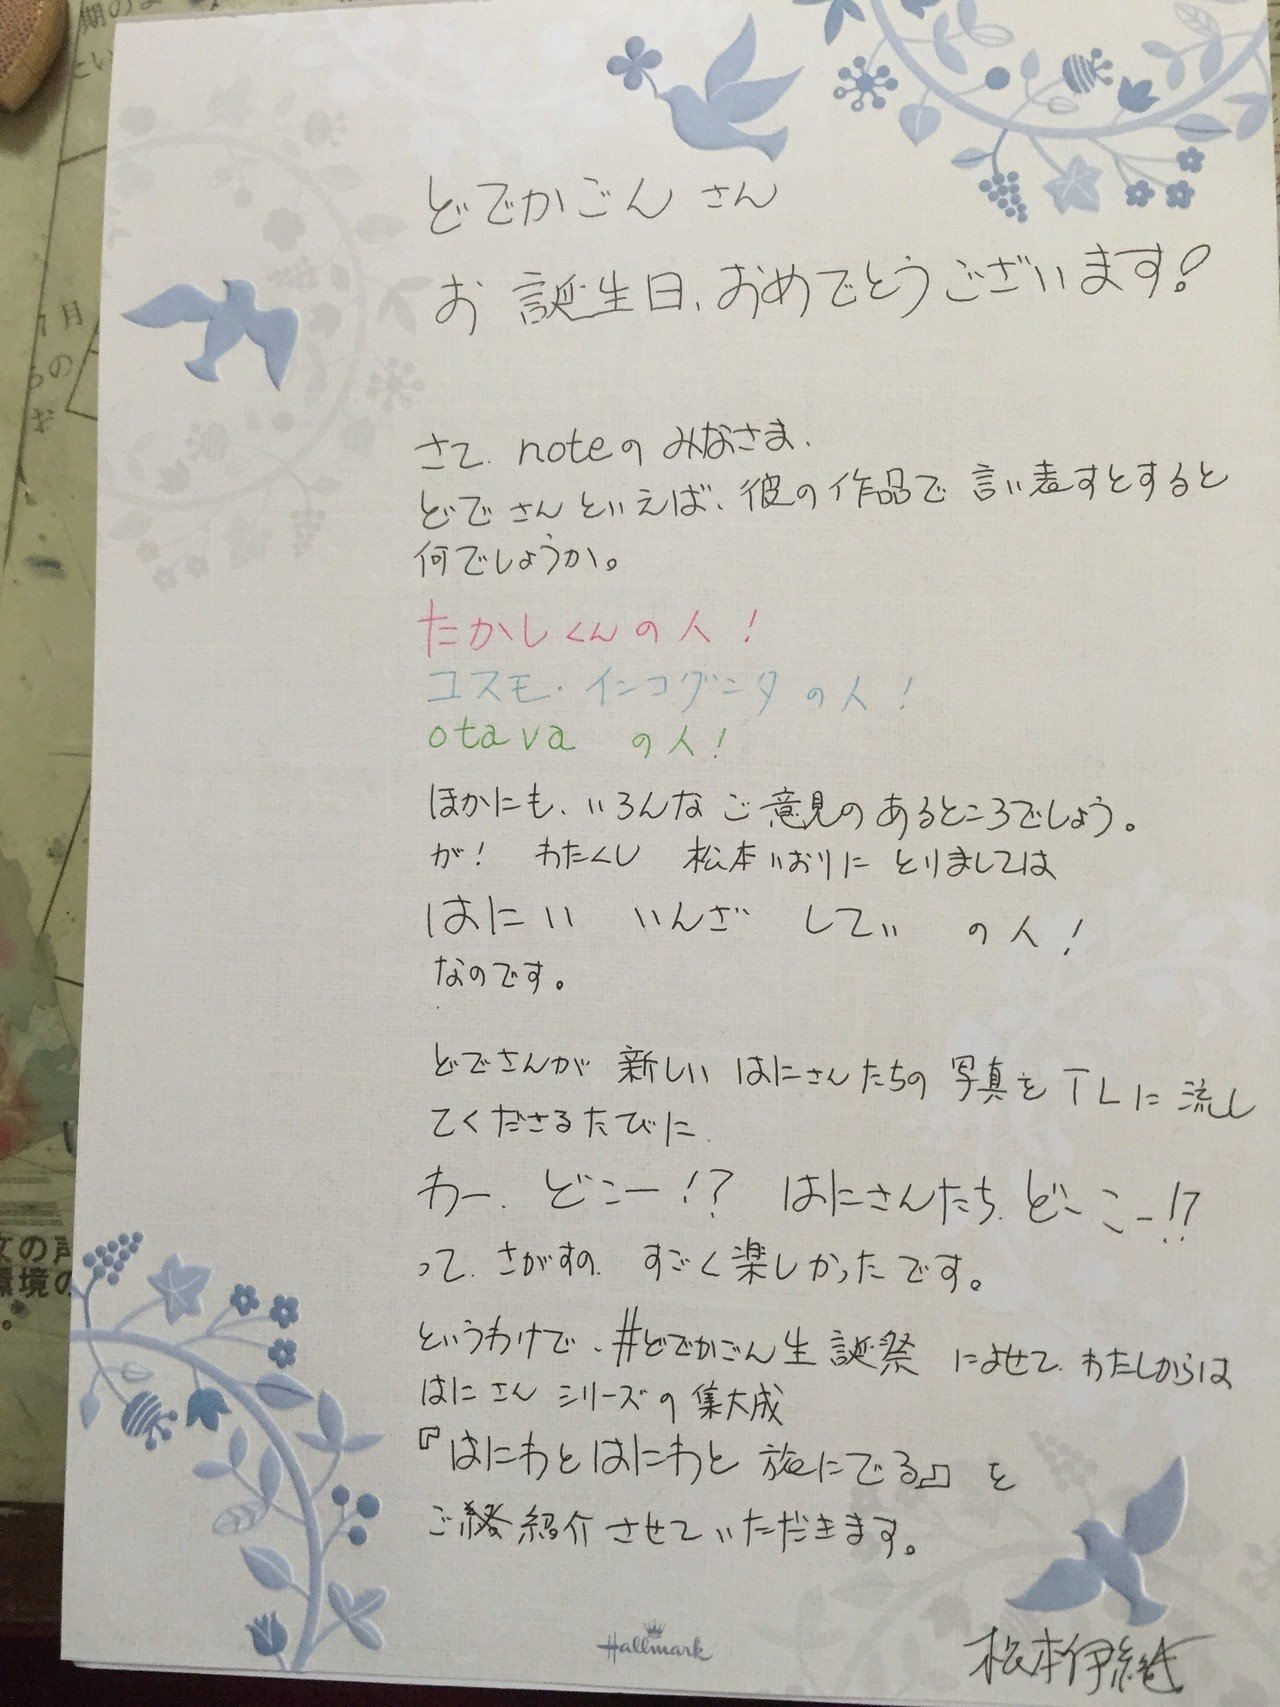 どでかごん さん
お誕生日、おめでとうございます!
さて、noteの みなさま、
どでさんといえば、彼の作品で言い表すとすると
何でしょうか。
たかしくんの人!
コスモ・インコグニタ の人!
otava の人!
ほかにも、いろんなご意見のあるところでしょう。
が! わたくし 松本いおりに とりましては
はにい いんざ してぃ の人!
なのです。
どでさんが 新しい はにさんたちの 写真を TLに 流し
てくださるたびに、
わー、どこー!? はにさんたち、どーこー!?
って、さがすの、すごく楽しかったです。
というわけで、#どでかごん生誕祭 によせて、わたしからは
はにさん シリーズの 集大成
『はにわとはにわと 旅にでる』を
ご紹介させていただきます。
Hallmark
松本伊織
期のよ
とい
1月
の
文の声
環境の
。